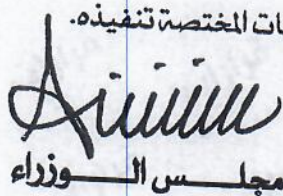 ات المختصة تنفيذه.
مجلس الوزراء